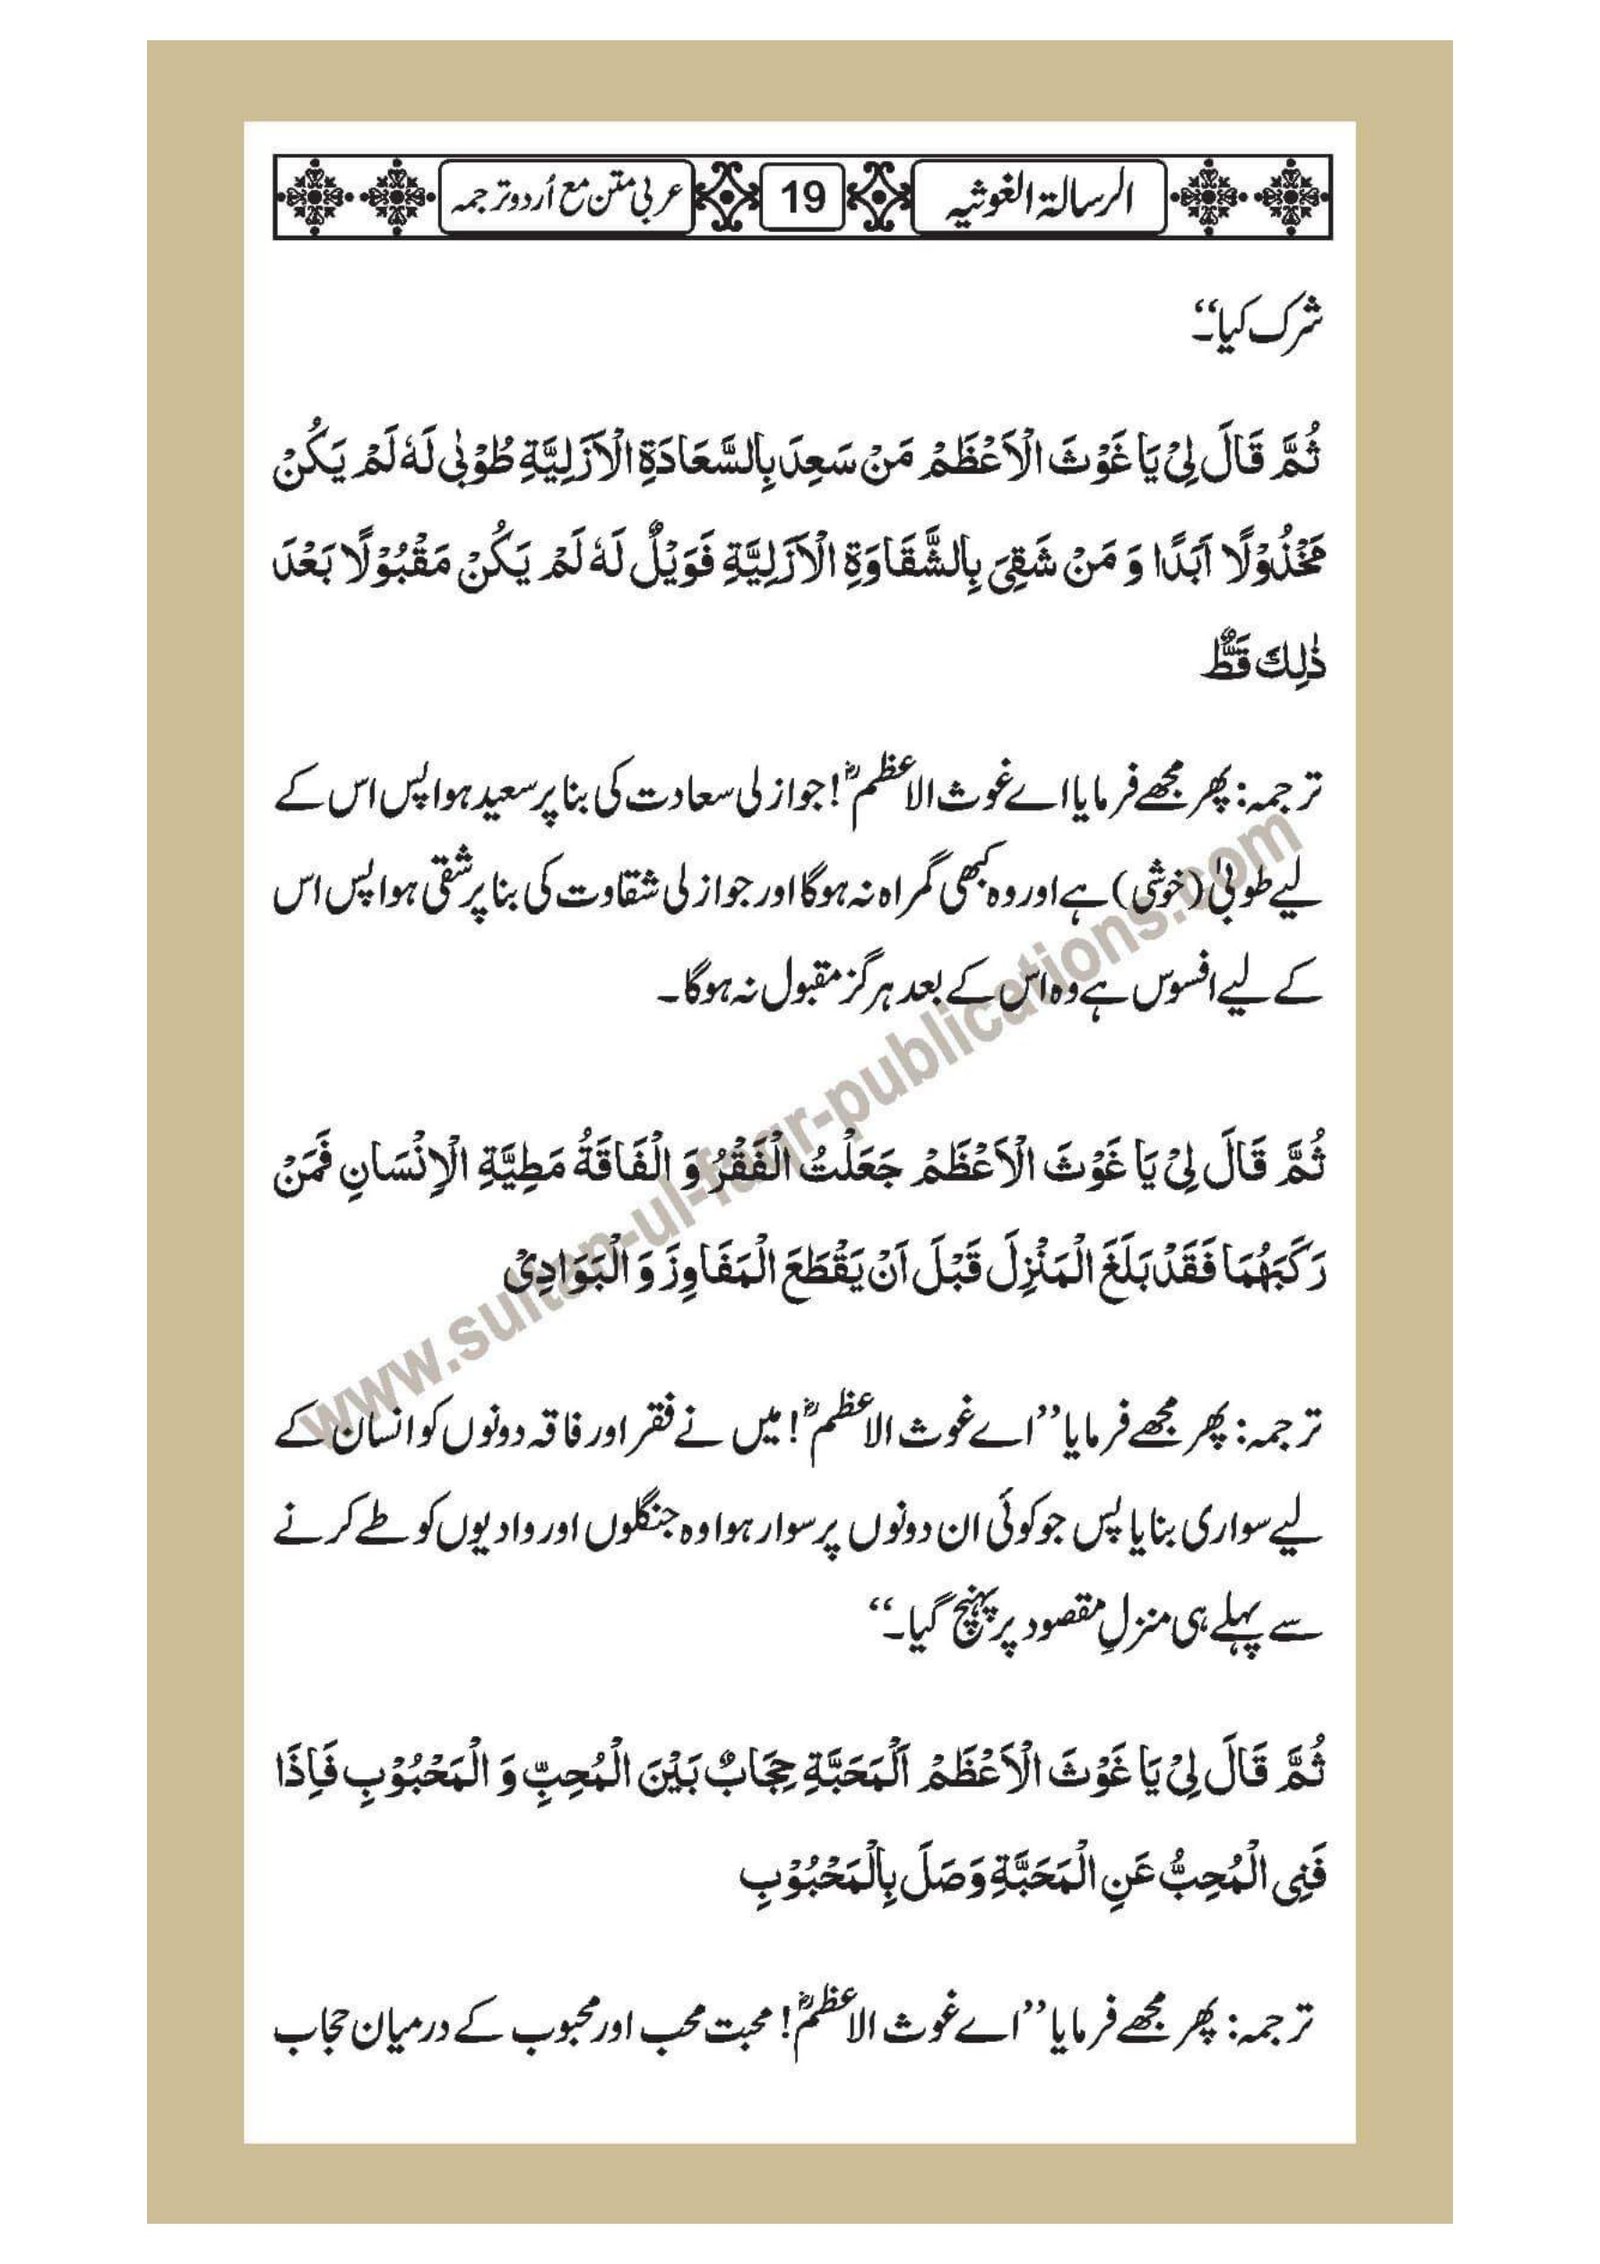 الرسالۃ الغوثیہ
19
عربی متن مع اُردو ترجمہ
شرک کیا۔‘‘
ثُمَّ قَالَ لِیْ یَا غَوْثَ الْاَعْظَمْ مَنْ سَعِدَ بِالسَّعَادَۃِ الْاَزَلِیَّۃِ طُوْبٰی لَہٗ لَمْ یَکُنْ
مَخْذُوْلًا اَبَدًا وَ مَنْ شَقِیَ بِالشَّقَاوَۃِ الْاَزَلِیَّۃِ فَوَیْلٌ لَہٗ لَمْ یَکُنْ مَقْبُوْلًا بَعْدَ
ذٰلِكَ قَطٌّ
ترجمہ: پھر مجھے فرمایا اے غوث الاعظمؓ! جو ازلی سعادت کی بنا پر سعید ہوا پس اس کے
لیے طوبٰی (خوشی) ہے اور وہ کبھی گمراہ نہ ہوگا اور جو ازلی شقاوت کی بنا پر شقی ہوا پس اس
کے لیے افسوس ہے وہ اس کے بعد ہرگز مقبول نہ ہوگا۔
ثُمَّ قَالَ لِیْ یَا غَوْثَ الْاَعْظَمْ جَعَلْتُ الْفَقْرُ وَ الْفَاقَۃُ مَطِیَّۃِ الْاِنْسَانِ فَمَنْ
رَکَبَہُمَا فَقَدْ بَلَغَ الْمَنْزِلَ قَبْلَ اَنْ یَقْطَعَ الْمَفَاوِزَ وَ الْبَوَادِیْ
ترجمہ: پھر مجھے فرمایا ’’اے غوث الاعظمؓ! میں نے فقر اور فاقہ دونوں کو انسان کے
لیے سواری بنایا پس جو کوئی ان دونوں پر سوار ہوا وہ جنگلوں اور وادیوں کو طے کرنے
سے پہلے ہی منزلِ مقصود پر پہنچ گیا۔‘‘
ثُمَّ قَالَ لِیْ یَا غَوْثَ الْاَعْظَمْ اَلْمَحَبَّۃِ حِجَابٌ بَیْنَ الْمُحِبِّ وَ الْمَحْبُوْبِ فَاِذَا
فَنِی الْمُحِبُّ عَنِ الْمَحَبَّۃِ وَصَلَ بِالْمَحْبُوْبِ
ترجمہ: پھر مجھے فرمایا ’’اے غوث الاعظمؓ! محبت محب اور محبوب کے درمیان حجاب
www.sultan-ul-faqr-publications.com